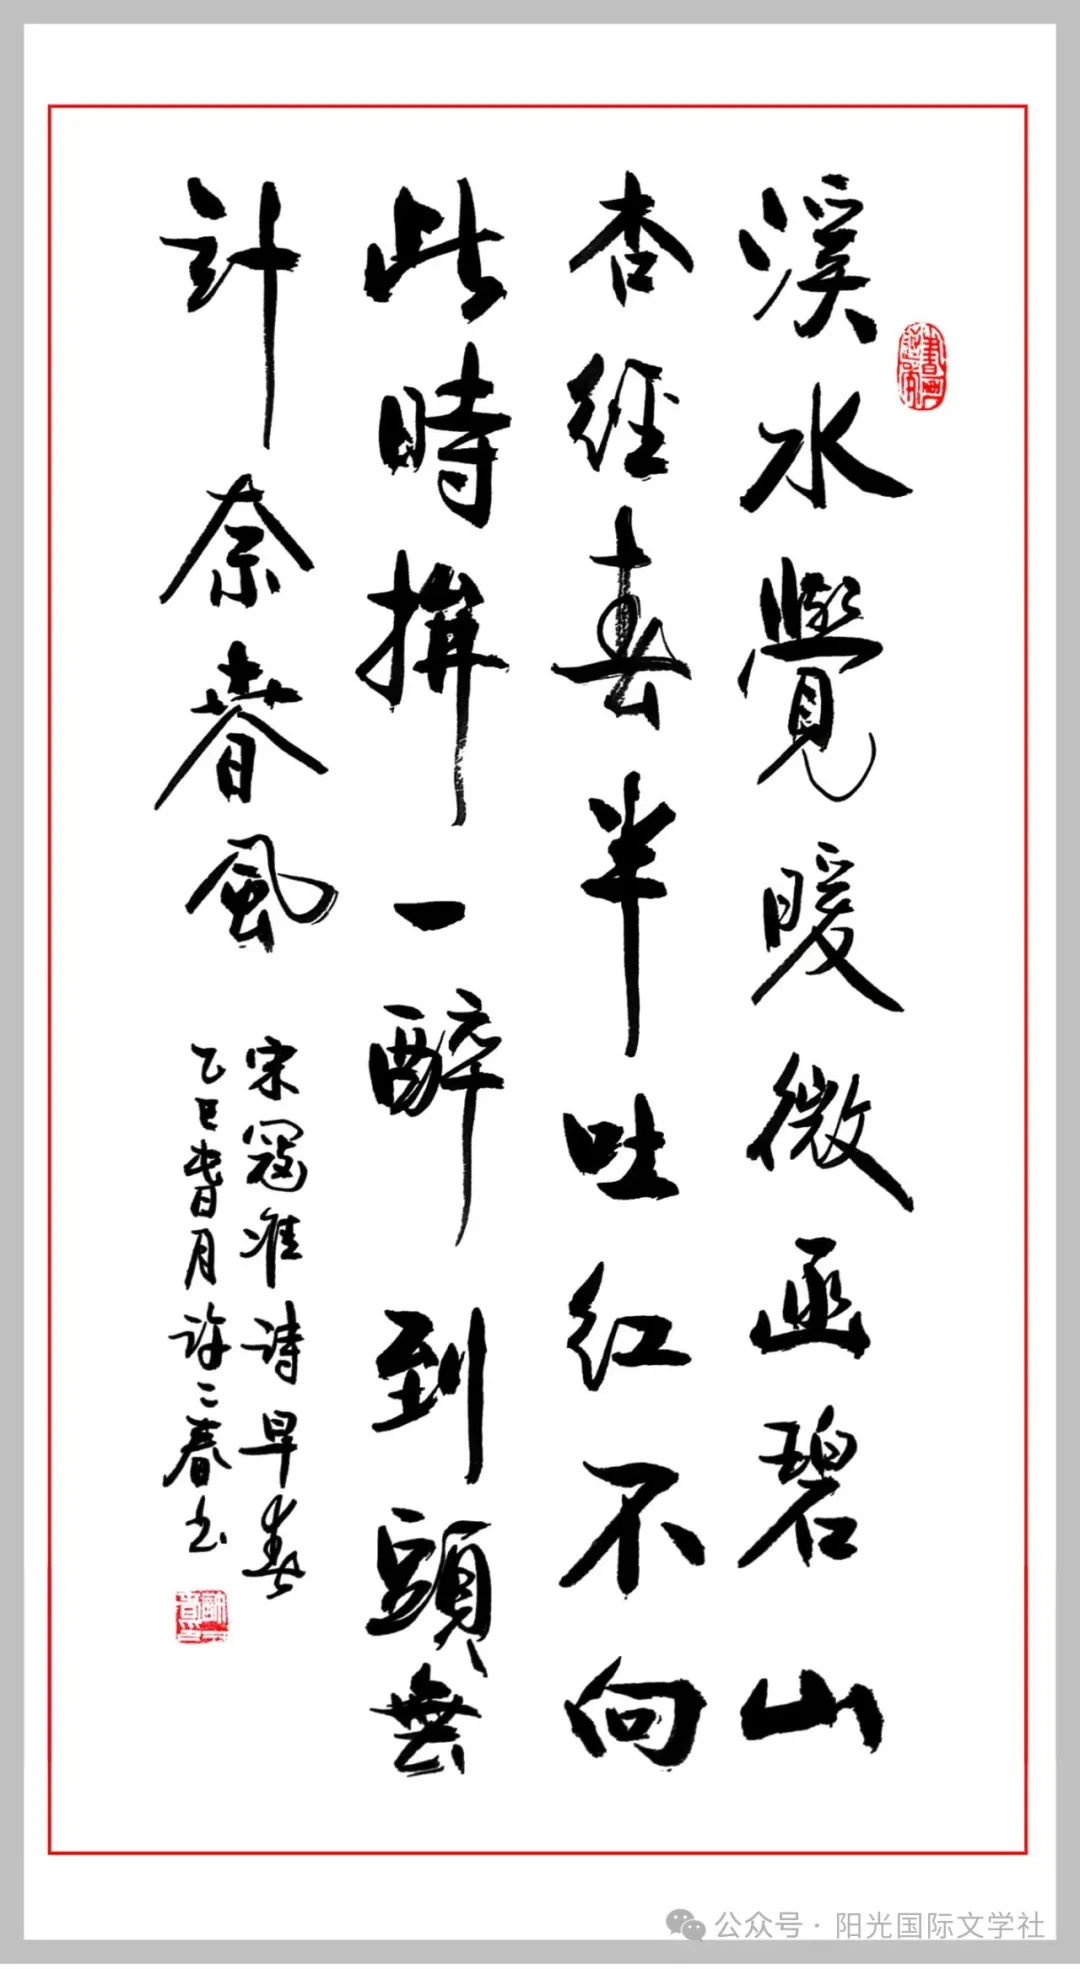 溪水覺暖微函碧山
杏經春半吐红不向
此時拚一醉到頭無
計奈春風
宋寇准诗早春
乙巳春月许三春书
公众号 · 阳光国际文学社